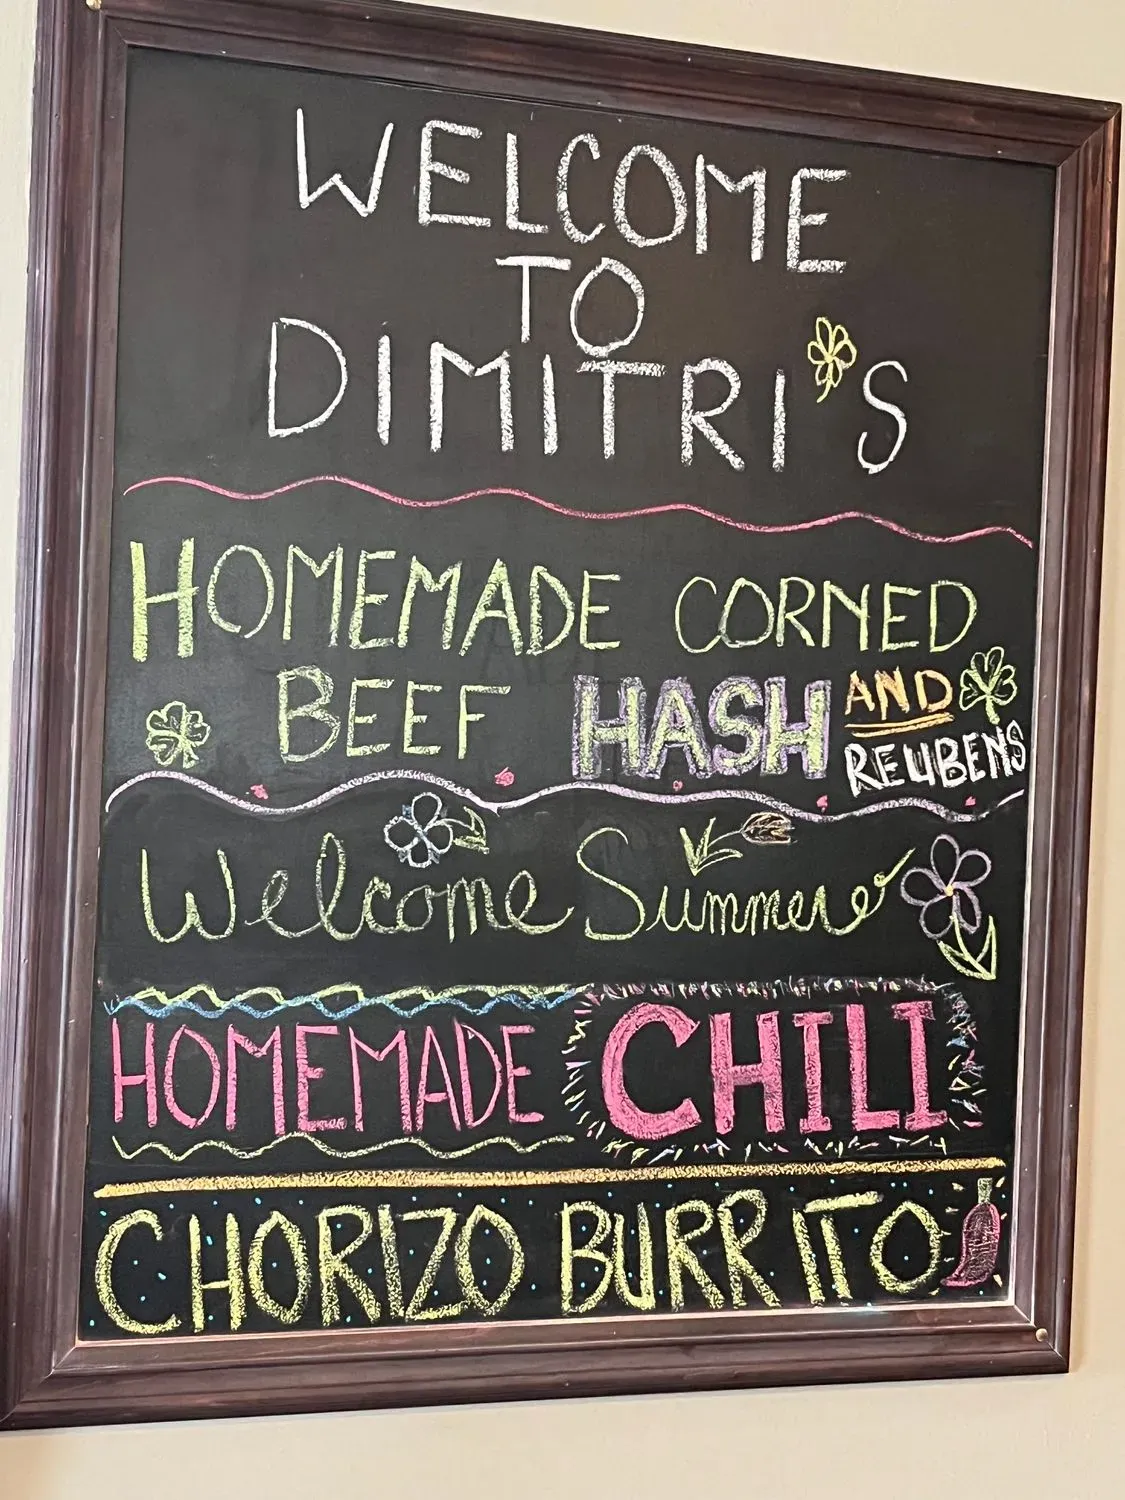 WELCOME
TO
DIMITRI'S
HOMEMADE CORNED
BEEF HASH AND
REUBENS
Welcome Summer
HOMEMADE CHILI
CHORIZO BURRITO